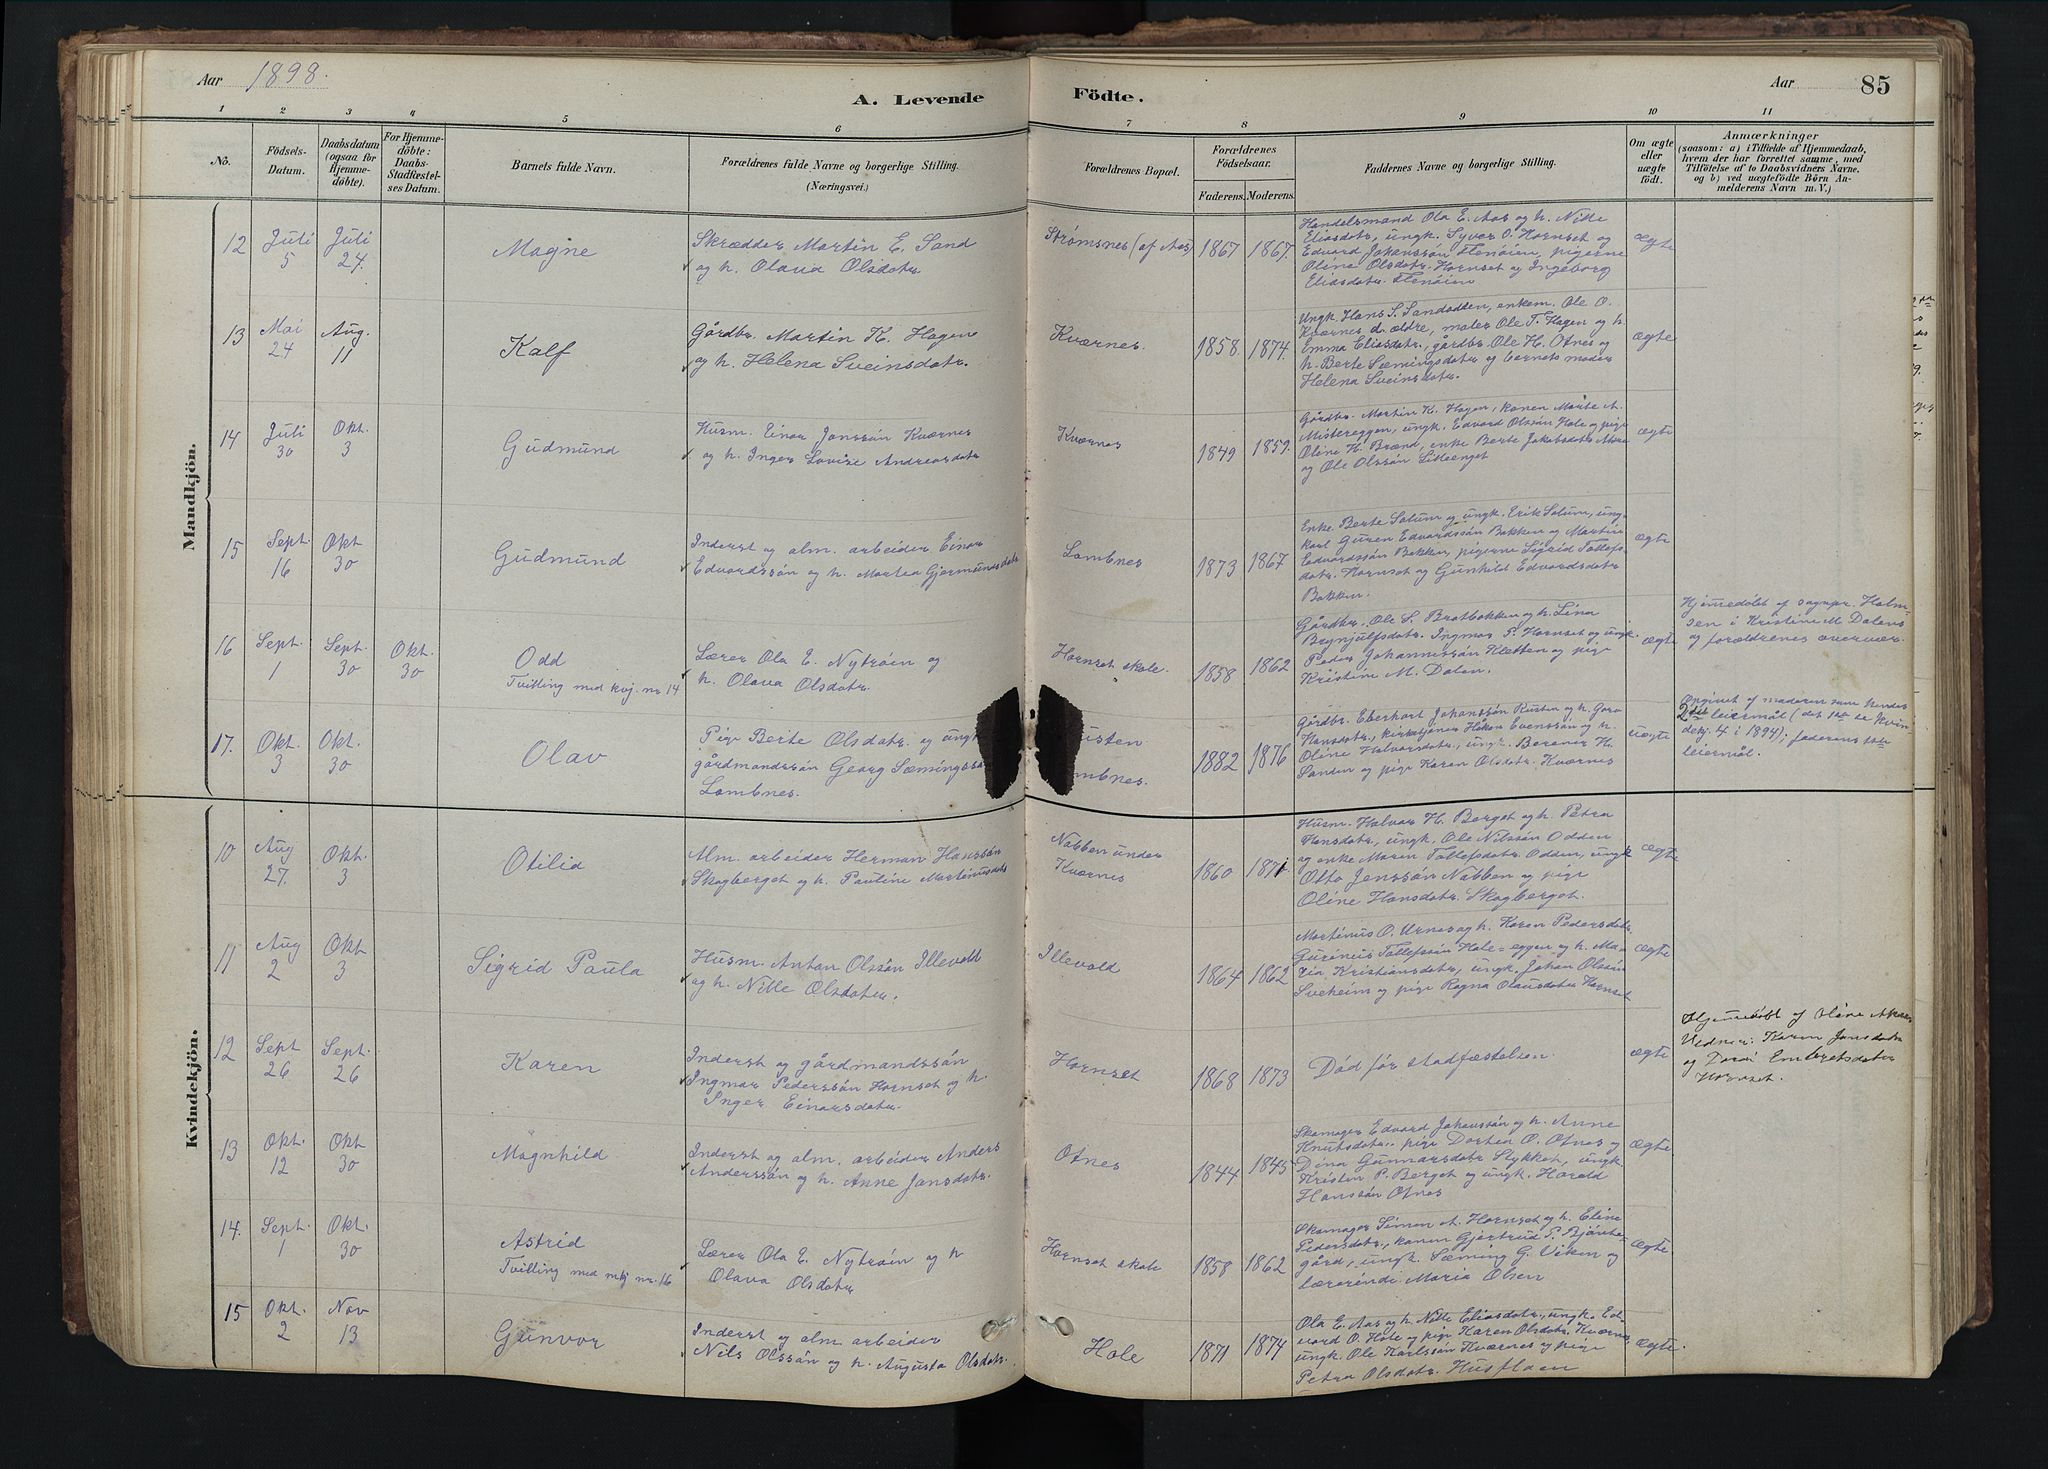 Aar 1898.
A. Levende Födte.
Aar 85
1 2 3 4 5 6 7 8 9 10 11
No.
Födsels-
Datum.
Daabsdatum
(ogsaa for
Hjemme-
döbte).
For Hjemme-
döbte:
Daabs-
Stadfæstel-
ses Datum.
Barnets fulde Navn.
Forældrenes fulde Navne og borgerlige Stilling.
(Næringsvei.)
Forældrenes Bopæl.
Forældrenes
Födselsaar.
Faderens. Moderens.
Faddernes Navne og borgerlige Stilling.
Om ægte
eller
uægte
födt.
Anmærkninger
(saasom: a) i Tilfælde af Hjemmedaab,
hvem der har forrettet samme, med
Tilföielse af to Daabsvidners Navne,
og b) ved uægtefödte Börn An-
melderens Navn m. V.)
Mandkjön.
12
Juli
5
Juli
24.
Magne
Skrædder Martin E. Sand
og h. Olava Olsdatr.
Strømsnes (af Aas)
1867 1867.
Handelsmand Ola E. Aas og h. Nille
Eliasdatr, ungk. Syver O. Hornset og
Edvard Johanssön Flenöien, pigerne
Oline Olsdatr. Hornset og Ingeborg
Eliasdatr. Flenöien
ægte
13
Mai
24
Aug.
11
Kalf
Gårdbr. Martin K. Hagen
og h. Helena Sveinsdatr.
Kværnes.
1858. 1874.
Ungk. Hans S. Sandodden, enkem. Ole O.
Kværnes d. ældre, maler Ole T. Hagen og h
Emma Eliasdatr., gårdbr. Ole H. Otnes og
h. Berte Sæmingsdatr og barnets moder
Helena Sveinsdatr.
ægte
14
Juli
30
Okt.
3
Gudmund
Husm. Einar Janssön Kværnes
og h. Inger Lovise Andreasdatr
Kværnes
1849 1859.
Gårdbr. Martin K. Hagen, konen Marte A.
Mistereggen, ungk. Edvard Olssön Hole og pige
Oline H. Brænd, enke Berte Jakobsdatr
og Ole Olssön Lilleenget
ægte
15
Sept.
16
Okt
30
Gudmund
Inderst og alm. arbeider Einar
Edvardssön og h. Martea Gjermundsdatr
Lombnes
1873 1867
Enke Berte Solum og ungk. Erik Solum, ung-
karl Guren Edvardssön Bakken og Martin
Edvardssön Bakken, pigerne Sigrid Tollefs-
datr. Hornset og Gunhild Edvardsdatr
Bakken.
ægte
16
Sept.
1
Sept.
30
Okt.
30
Odd
Tvilling med kvj. nr. 14
Lærer Ola E. Nytröen og
h. Olava Olsdatr.
Hornset skole.
1858 1862
Gårdbr. Ole S. Bratbakken og h. Lina
Brynjulfsdatr. Ingmar P. Hornset og ungk.
Peder Johannessön Kletten og pige
Kristine M. Dalen.
ægte
Hjemedöbt af sognpr. Holm-
sen i Kristine M. Dalens
og forældrenes overvær.
17.
Okt.
3
Okt.
30
Olav
Pige Berte Olsdatr. og ungk.
gårdmandssön Georg Sæmingssön
Lombnes.
Rusten
Lombnes.
1882 1876
Gårdbr. Eberhart Johanssön Rusten og h. Goro
Hansdatr., kirketjener Håkon Evenssön og h.
Oline Halvorsdatr., ungk. Berner H.
Sanden og pige Karen Olsdatr. Kværnes
uægte
Angivet af moderen som hendes
2det leiermål (det 1ste se kvin
dekj. 4 i 1894); faderens 1ste
leiermål.
Kvindekjön.
10
Aug
27.
Okt.
3
Otilia
Alm. arbeider Herman Hanssön
Skogberget og h. Pauline Martinusdatr
Nabben under
Kværnes
1860 1871
Husm. Halvor H. Berget og h. Petra
Hansdatr., ungk. Ole Nilssön Odden
og enke Maren Tollefsdatr. Odden, ungk
Otto Jenssön Nabben og pige
Oline Hansdatr. Skogberget.
ægte
11
Aug
2
Okt
3
Sigrid Paula
Husm. Anton Olssön Illevold
og h. Nille Olsdatr.
Illevold
1864 1862
Martinus O. Urnes og h. Karen Pedersdatr.
Gurenius Tollefssön Hole-eggen og h. Ma-
ria Kristiansdatr, ungk. Johan Olssön
Sveheim og pige Ragna Olausdatr Hornset
ægte
12
Sept
26
Sept.
26
Karen
Inderst og gårdmandssön
Ingmar Pederssön Hornset og h.
Inger Einarsdatr.
Hornset
1868 1873
Död för stadfæstelsen.
ægte
Hjemmedöbt af Oline
Vidner: Karen Jonsdatr
og Embretsdatr
Hornset.
13
Okt.
12
Okt
30
Magnhild
Inderst og alm. arbeider Anders
Anderssön og h. Anne Jansdatr.
Otnes
1844 1845
Skomager Edvard Johanssön og h. Anne
Knutsdatr. pige Dortea O. Otnes og
Dina Gunnarsdatr Stykket, ungk.
Kristen P. Berget og ungk. Harald
Hanssön Otnes
ægte
14.
Sept.
1
Okt.
30
Astrid
Tvilling med mkj nr. 16
Lærer Ola E. Nytröen og h
Olava Olsdatr
Hornset skole
1858 1862
Skomager Simen A. Hornset og h. Eline
Pedersdatr., konen Gjertrud P. Bjönte-
gård, ungk. Sæming G. Viken og
lærerinde Maria Olsen
ægte
15
Okt.
2
Nov
13
Gunvor
Inderst og alm arbeider
Nils Olssön og h. Augusta Olsdatr.
Hole
1871 1874
Ola E. Aas og h. Nille Eliasdatr., ungk. Ed-
vard O. Hole og pige Karen Olsdatr. Kværnes,
ungk. Ole Karlssön Kværnes og pige
Petra Olsdatr. Husfloen
ægte.